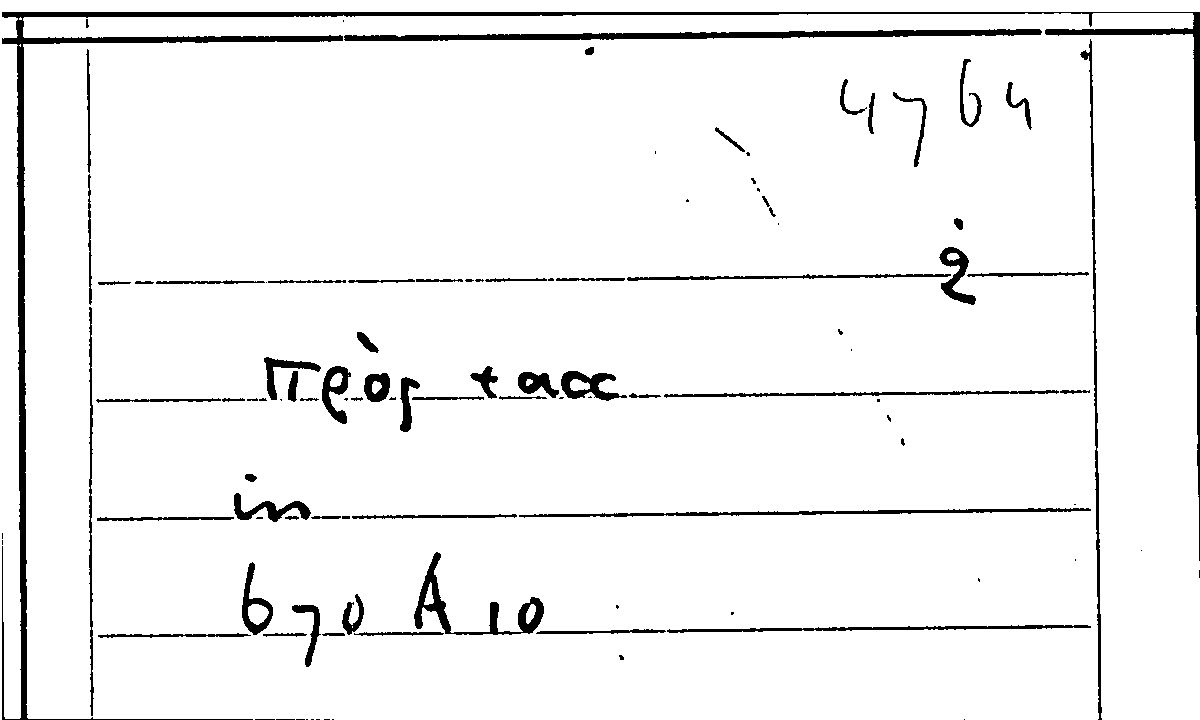 4764
πρὸς + acc
in
670 A 10